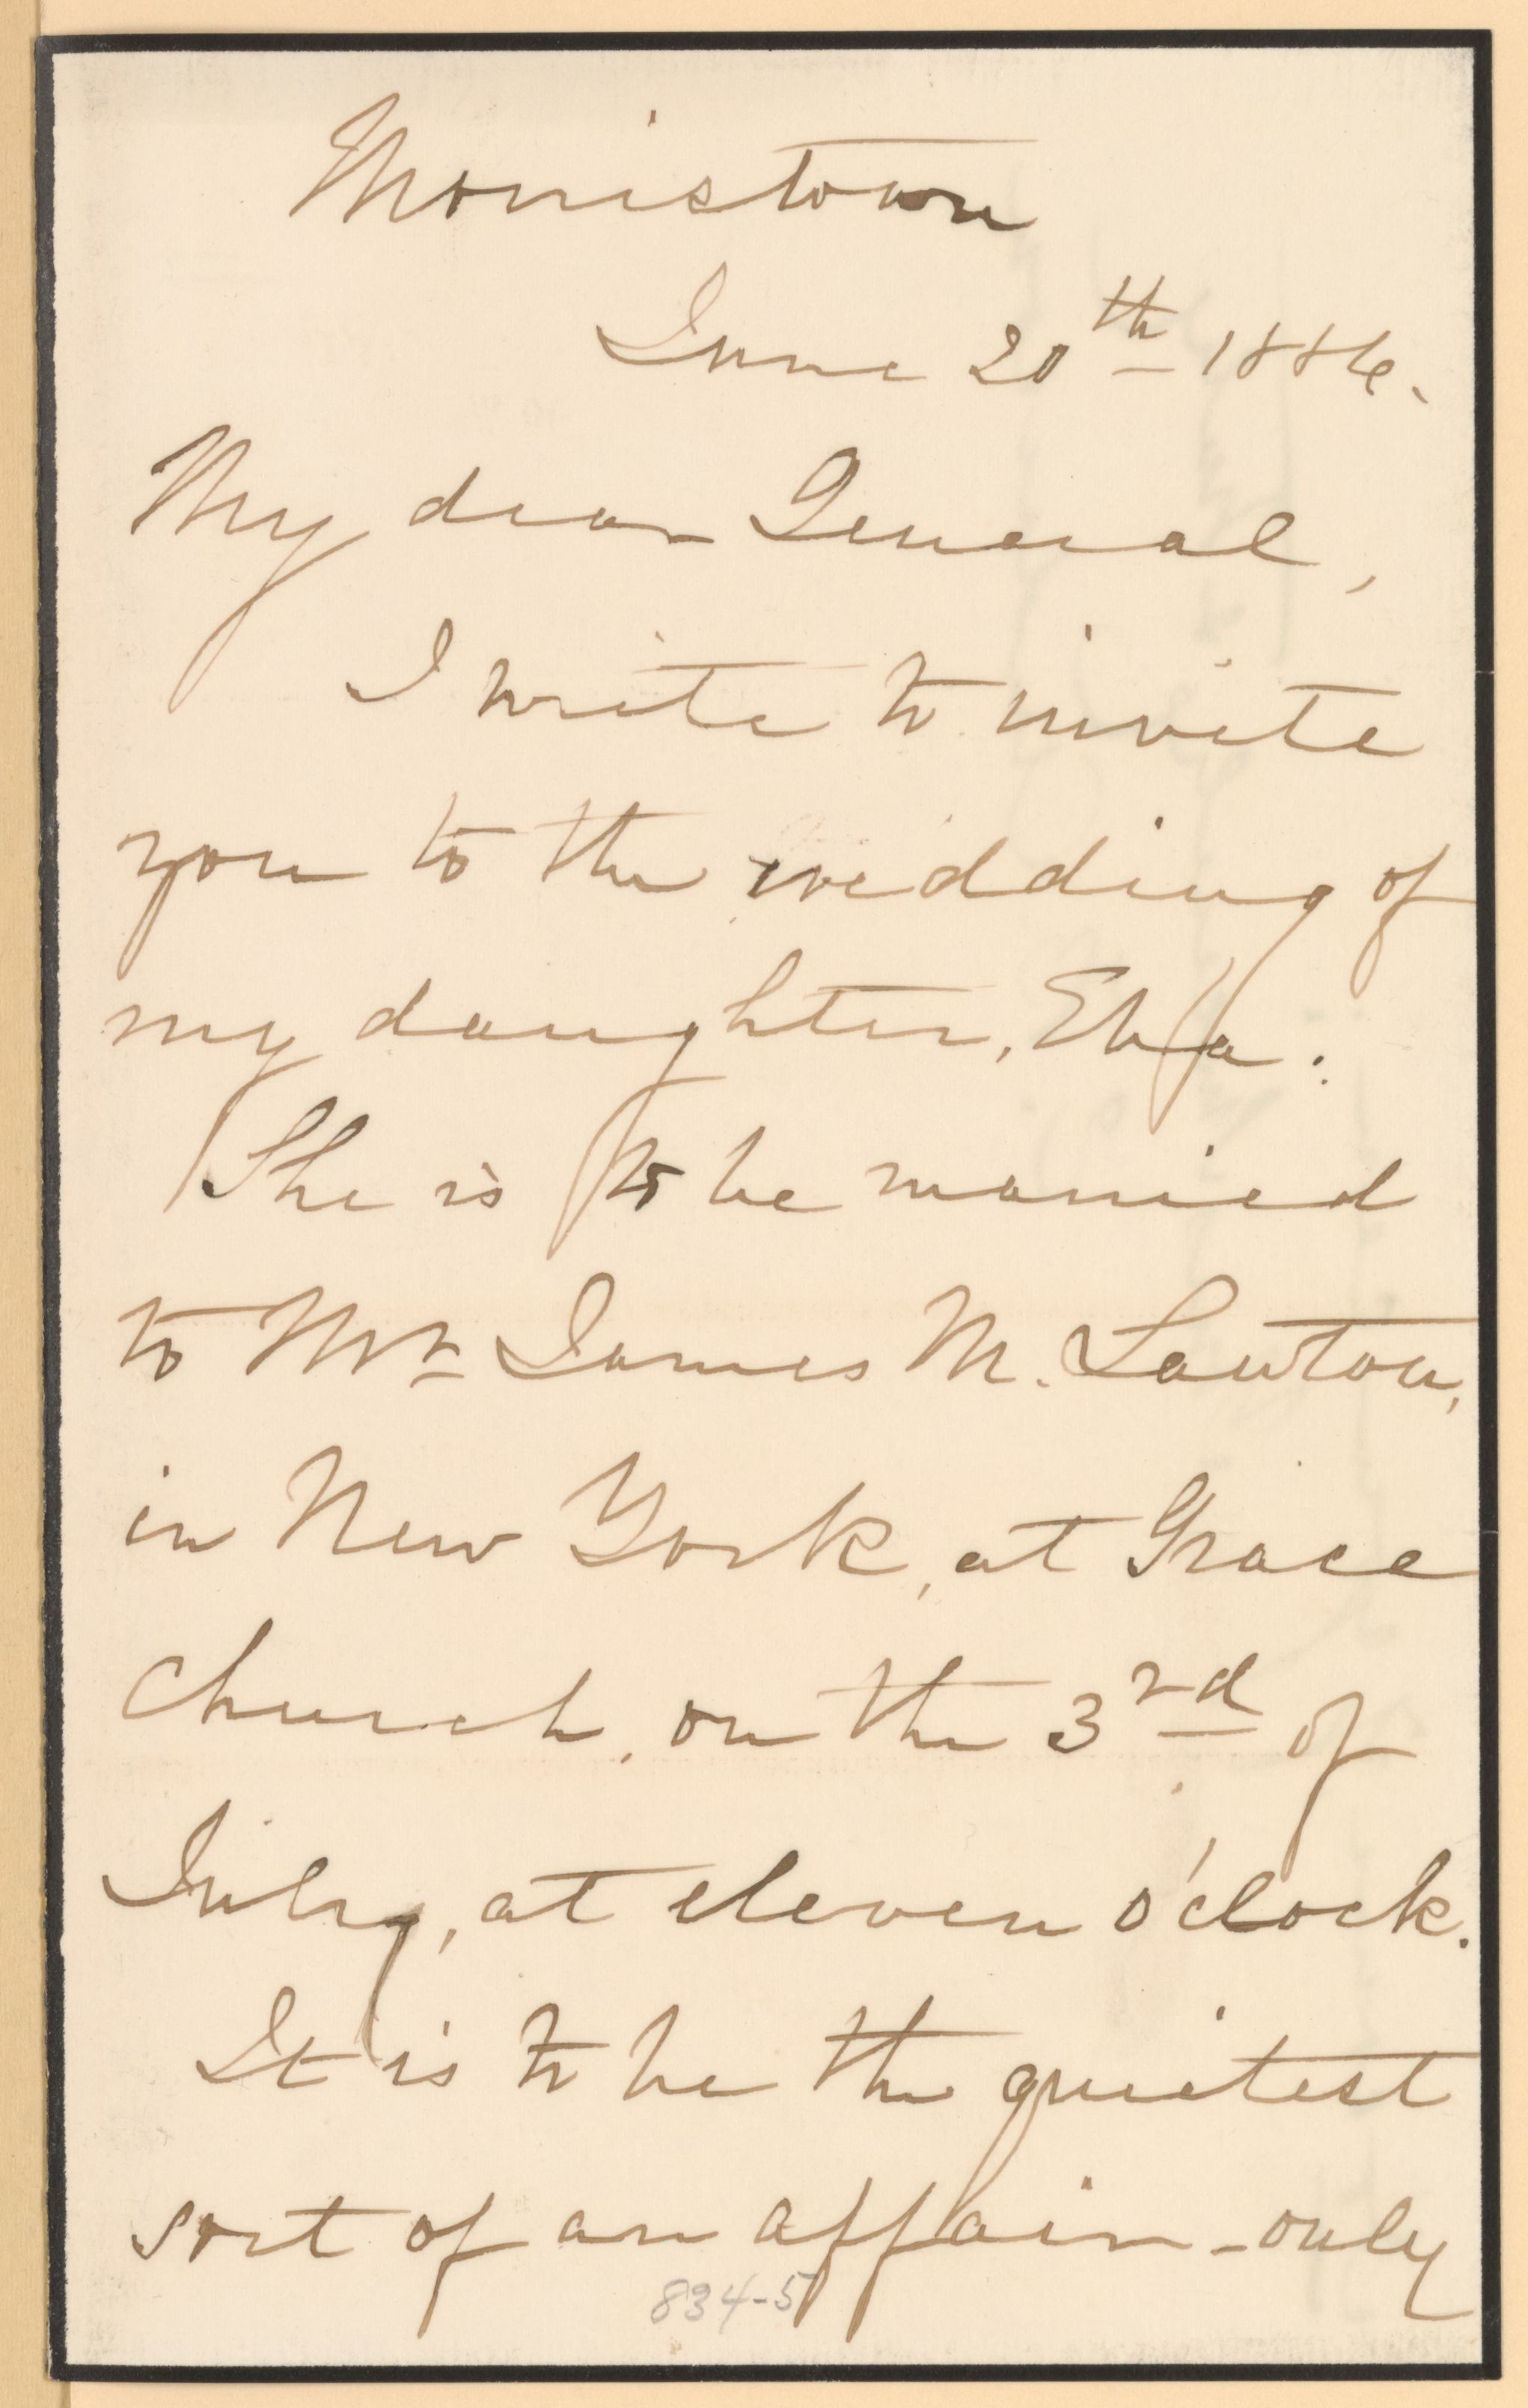 Morristown
June 20th 1886.
My dear General,
I write to invite
you to the wedding of
my daughter, Eba.
She is to be married
to Mr James M. Lawton,
in New York, at Grace
Church, on the 3rd of
July, at eleven o'clock.
It is to be the quietest
sort of an affair - only
834-5